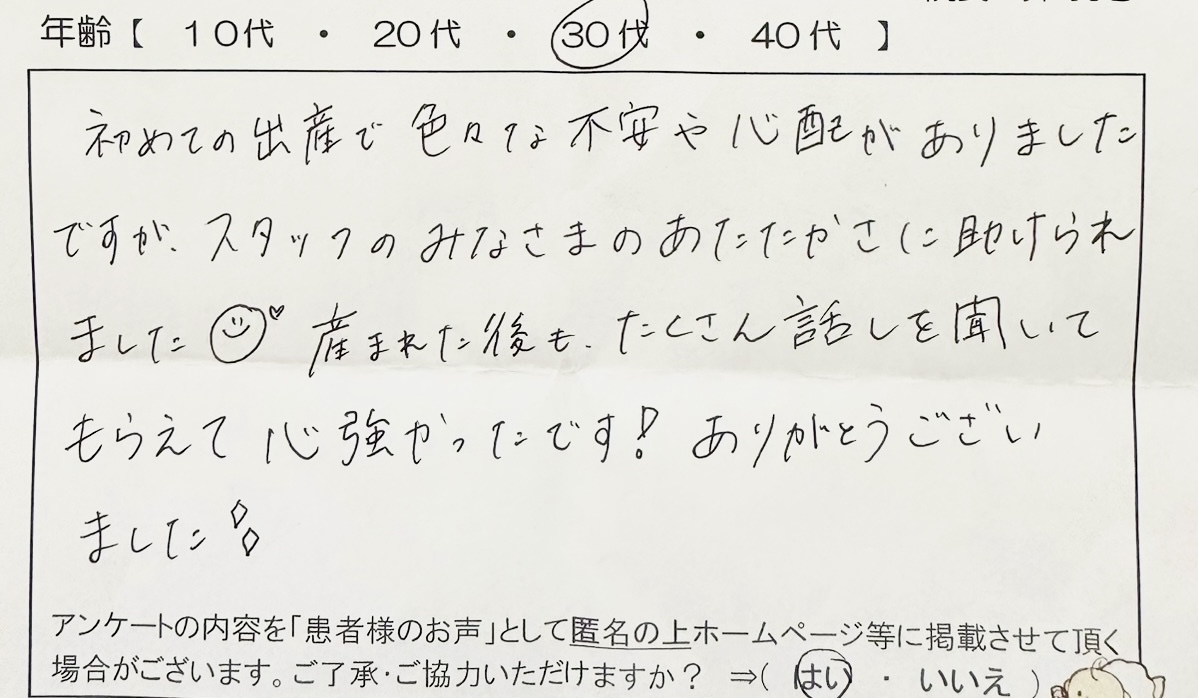 年齢【 10代 ・ 20代 ・ 30代 ・ 40代 】
初めての出産で色々な不安や心配がありました
ですが、スタッフのみなさまのあたたかさに助けられ
ました 産まれた後も、たくさん話しを聞いて
もらえて心強かったです!ありがとうござい
ました
アンケートの内容を「患者様のお声」として匿名の上ホームページ等に掲載させて頂く
場合がございます。ご了承・ご協力いただけますか? ⇒( はい ・ いいえ )